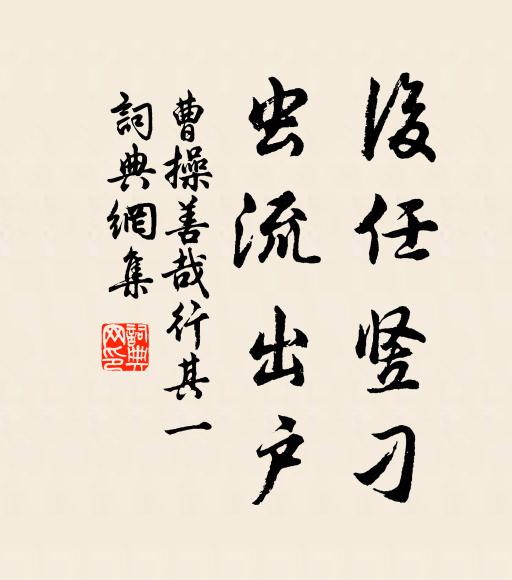 後任竖刁
虫流出户
曹操善哉行其一
詞典網集
詞典网印